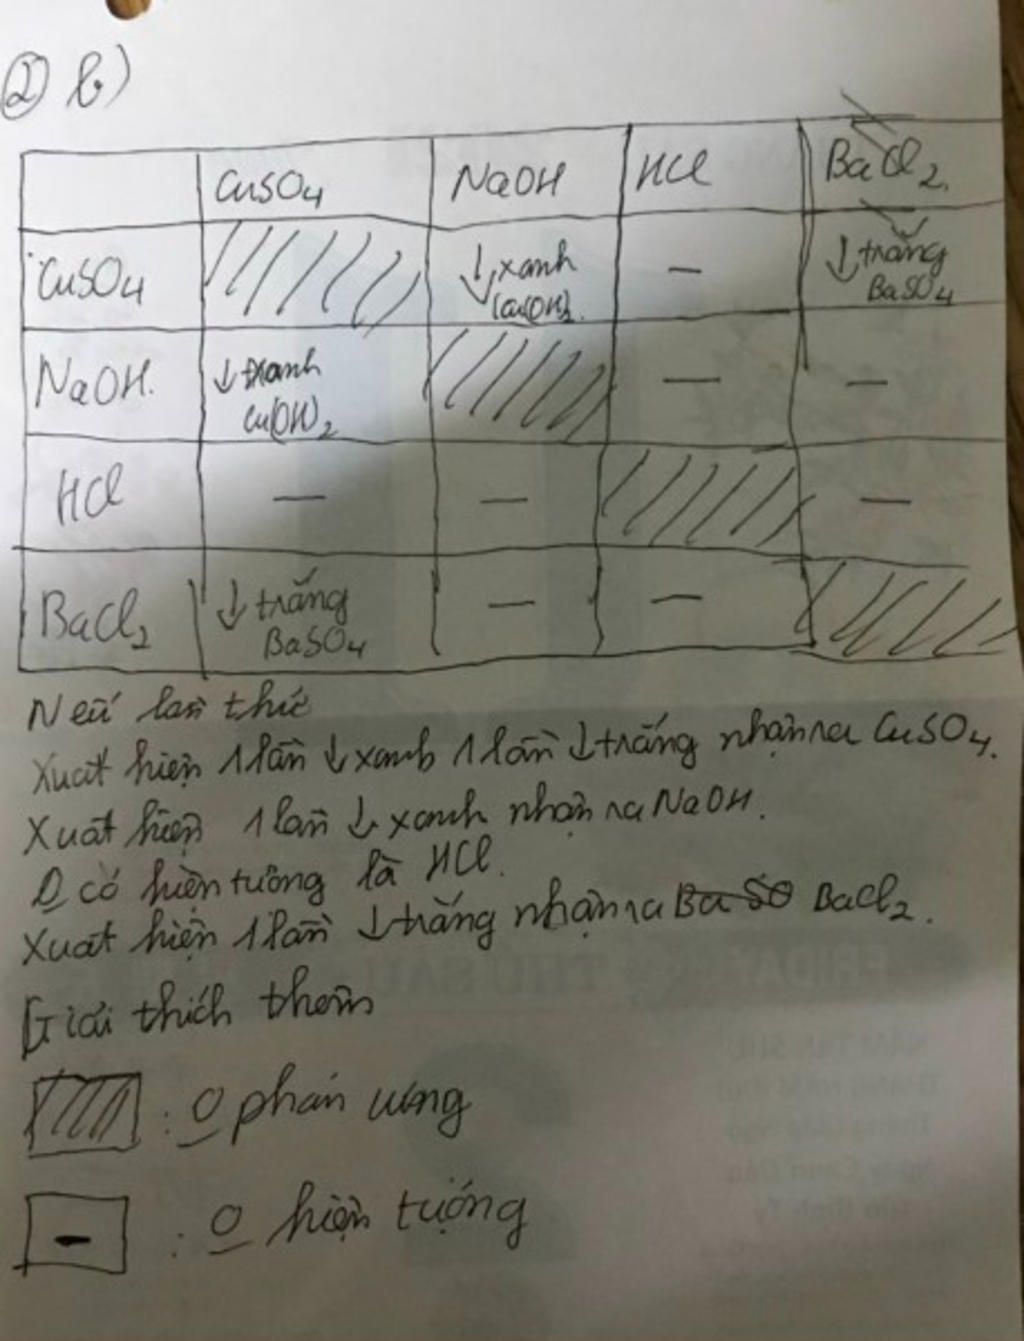 ② b)
CuSO4 NaOH HCl BaCl2
CuSO4 ↓ xanh Cu(OH)2 — ↓ trắng BaSO4
NaOH. ↓ xanh Cu(OH)2 — —
HCl — — —
BaCl2 ↓ trắng BaSO4 — —
Nếu lần thử
Xuất hiện 1 lần ↓ xanh 1 lần ↓ trắng nhận ra CuSO4.
Xuất hiện 1 lần ↓ xanh nhận ra NaOH.
O có hiện tường là HCl.
Xuất hiện 1 lần ↓ trắng nhận ra BaCl2.
Giải thích thêm
: O phản ứng
- : O hiện tượng
FRIDAY THỨ SÁU